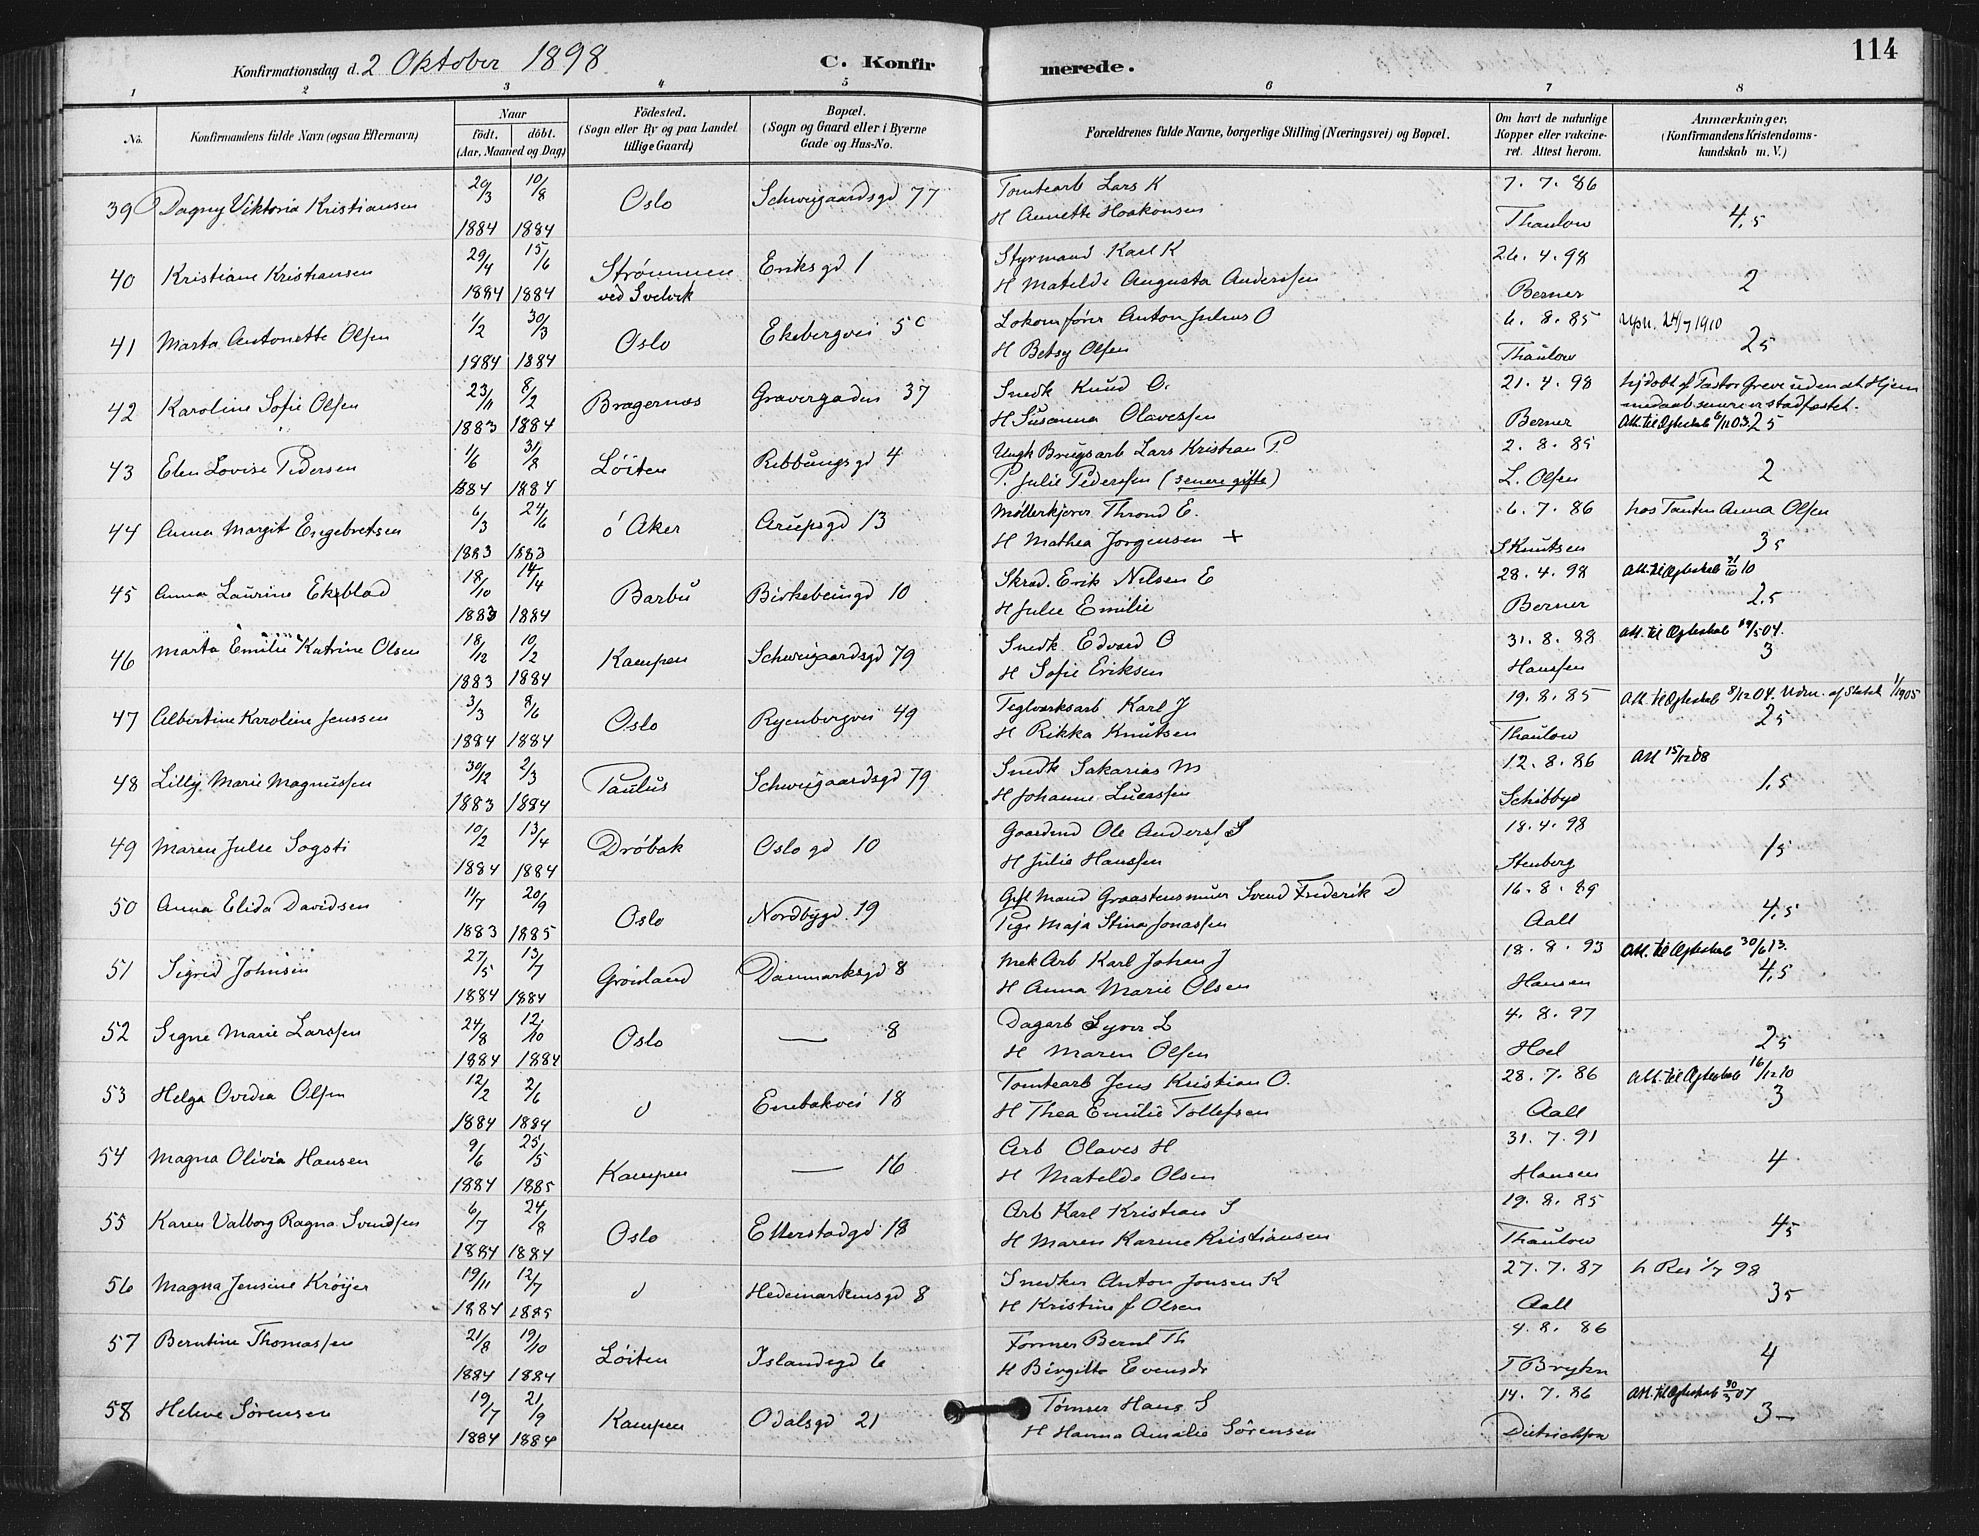 114
Konfirmationsdag d. 2 Oktober 1898
C. Konfirmerede.
1 2 3 4 5 6 7 8
No. Konfirmandens fulde Navn (ogsaa Efternavn) Naar födt. döbt. (Aar, Maaned og Dag) Födested. (Sogn eller By og paa Landet tillige Gaard) Bopæl. (Sogn og Gaard eller i Byerne Gade og Hus-No. Forældrenes fulde Navne, borgerlige Stilling (Næringsvei) og Bopæl. Om havt de naturlige Kopper eller vakcineret. Attest herom. Anmærkninger. (Konfirmandens Kristendomskundskab m. V.)
39 Dagny Viktoria Kristiansen 20/3 1884 10/8 1884 Oslo Schweigaardsgd 77 Tomtearb Lars K 7.7.86
H Annette Haakonsen Thaulow 4,5
40 Kristiane Kristiansen 29/4 1884 15/6 1884 Strømmen ved Svelvik Eriksgd 1 Styrmand Karl K 26.4.98
H Matilde Augusta Anderssen Berner 2
41 Marta Antonette Olsen 1/2 1884 30/3 1884 Oslo Ekebergvei 5c Lokomfører Anton Julius O 6.8.85 24/7 1910
H Betsy Olsen Thaulow 25
42 Karoline Sofie Olsen 23/11 1883 8/2 1884 Bragernæs Gravergaden 37 Snedk Knud O. 21.4.98 hjdøbt af Pastor Greve uden at Hjemmedaab senere er stadfæstet.
H Susanna Olavessen Berner Att. til Ægteskab 6/11 03. 25
43 Elen Lovise Pedersen 1/6 1884 31/8 1884 Løiten Ribbungsgd 4 Ungk Brugsarb Lars Kristian P. 2.8.85
P. Julie Pedersen (senere gifte) L. Olsen 2
44 Anna Margit Engebretsen 6/3 1883 24/6 1883 ö Aker Arupsgd 13 Møllerkjører Thrond E. 6.7.86 hos Tanten Anna Olsen
H Mathea Jørgensen + S Knutsen 35
45 Anna Laurine Ekblad 18/10 1883 14/4 1884 Barbu Birkebeingd 10 Skræd. Erik Nilsen E 28.4.98 Att. til Ægteskab 31/10 10
H Julie Emilie Berner 2,5
46 Marta Emilie Katrine Olsen 18/12 1883 10/2 1884 Kampen Schweigaardsgd 79 Snedk Edvard O 31.8.88 Att. til Ægteskab 19/5 04.
H Sofie Eriksen Hanssen 3
47 Albertine Karoline Jenssen 3/3 1884 8/6 1884 Oslo Ryenbergvei 49 Teglværksarb Karl J 19.8.85 Att. til Ægteskab 8/12 04. Udm. af Statsk 1/1905
H Rikka Knutsen Thaulow 25
48 Lilly Marie Magnussen 30/12 1883 2/3 1884 Paulus Schweigaardsgd 79 Snedk Sakarias M 12.8.86 Att 15/12 08
H Johanne Lucassen Schibbye 1,5
49 Maren Julie Sogsti 10/2 1884 13/4 1884 Drøbak Oslogd 10 Gaardmd Ole Anders S 18.4.98
H Julie Hanssen Stenberg 15
50 Anna Elida Davidsen 11/7 1883 20/9 1885 Oslo Nordbygd. 19 Gift Mand Graastensmurer Svend Frederik D 16.8.89
Pige Maja Stina Jonassen Aall 4,5
51 Sigrid Johnsen 27/5 1884 13/7 1884 Grønland Danmarksgd 8 Mek Arb Karl Johan J 18.8.93 Att. til Ægteskab 30/6 13.
H Anna Marie Olsen Hansen 4,5
52 Signe Marie Larssen 24/8 1884 12/10 1884 Oslo — 8 Dagarb Syver L 4.8.97
H Maren Olsen Hoel 25
53 Helga Ovidia Olsen 12/2 1884 2/6 1884 d Enebakvei 18 Tomtearb Jens Kristian O. 28.7.86 Att. til Ægteskab 16/12 10
H Thea Emilie Tollefsen Aall 3
54 Magna Olivia Hansen 9/6 1884 25/5 1885 Kampen — 16 Arb Olaves H 31.7.91
H Matelde Olsen Hansen 4
55 Karen Valborg Ragna Svendsen 6/7 1884 24/8 1884 Oslo Etterstadgd 18 Arb Karl Kristian S 19.8.85
H Maren Karine Kristiansen Thaulow 45
56 Magna Jensine Krøijer 19/11 1884 12/7 1885 d Hedemarkensgd 8 Snedker Anton Jonsen K 27.7.87 h Res 1/7 98
H Kristine f Olsen Aall 35
57 Berntine Thomassen 21/8 1884 19/10 1884 Løiten Islandsgd 6 Former Bernt Th 4.8.86
H Birgitte Evensdr T Bryhn 4
58 Helene Sørensen 19/7 1884 21/9 1884 Kampen Odalsgd 21 Tømrer Hans S 14.7.86 Att. til Ægteskab 30/3 07
H Hanna Amalie Sørensen Dietrichson 3—